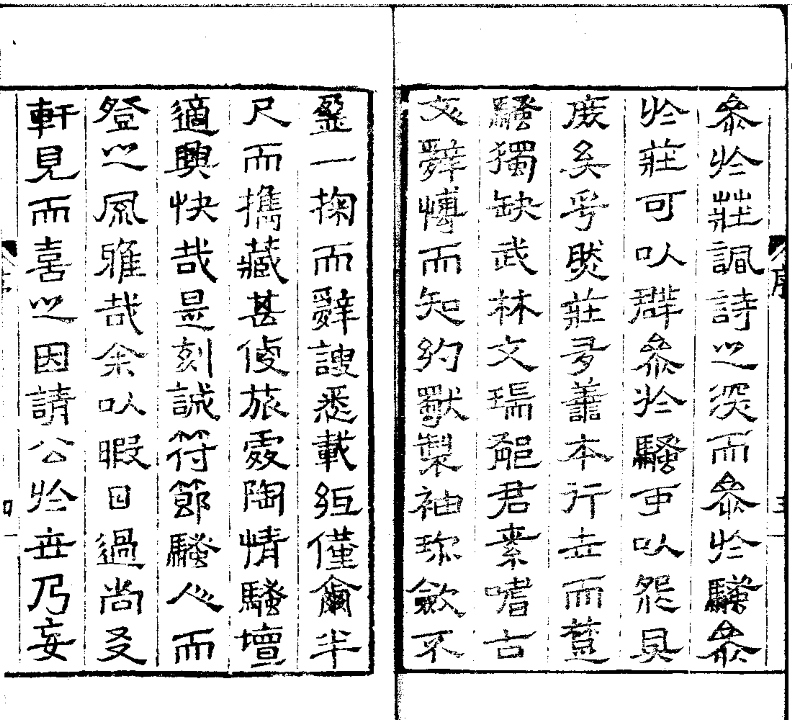 參於莊諷詩之深而參於騷參
於莊可以群參於騷可以怨具
庶矣乎然莊多舊本行世而楚
騷獨缺武林文瑞君素嗜古
文辭博而知約獸製袖珎歛不
盈一掬而辭謏悉載紙僅龠半
尺而攜藏甚便旅處陶情騷壇
適興快哉是刻誠符節騷人而
登之風雅哉余以暇日過尚友
軒見而喜之因請公於世乃妄